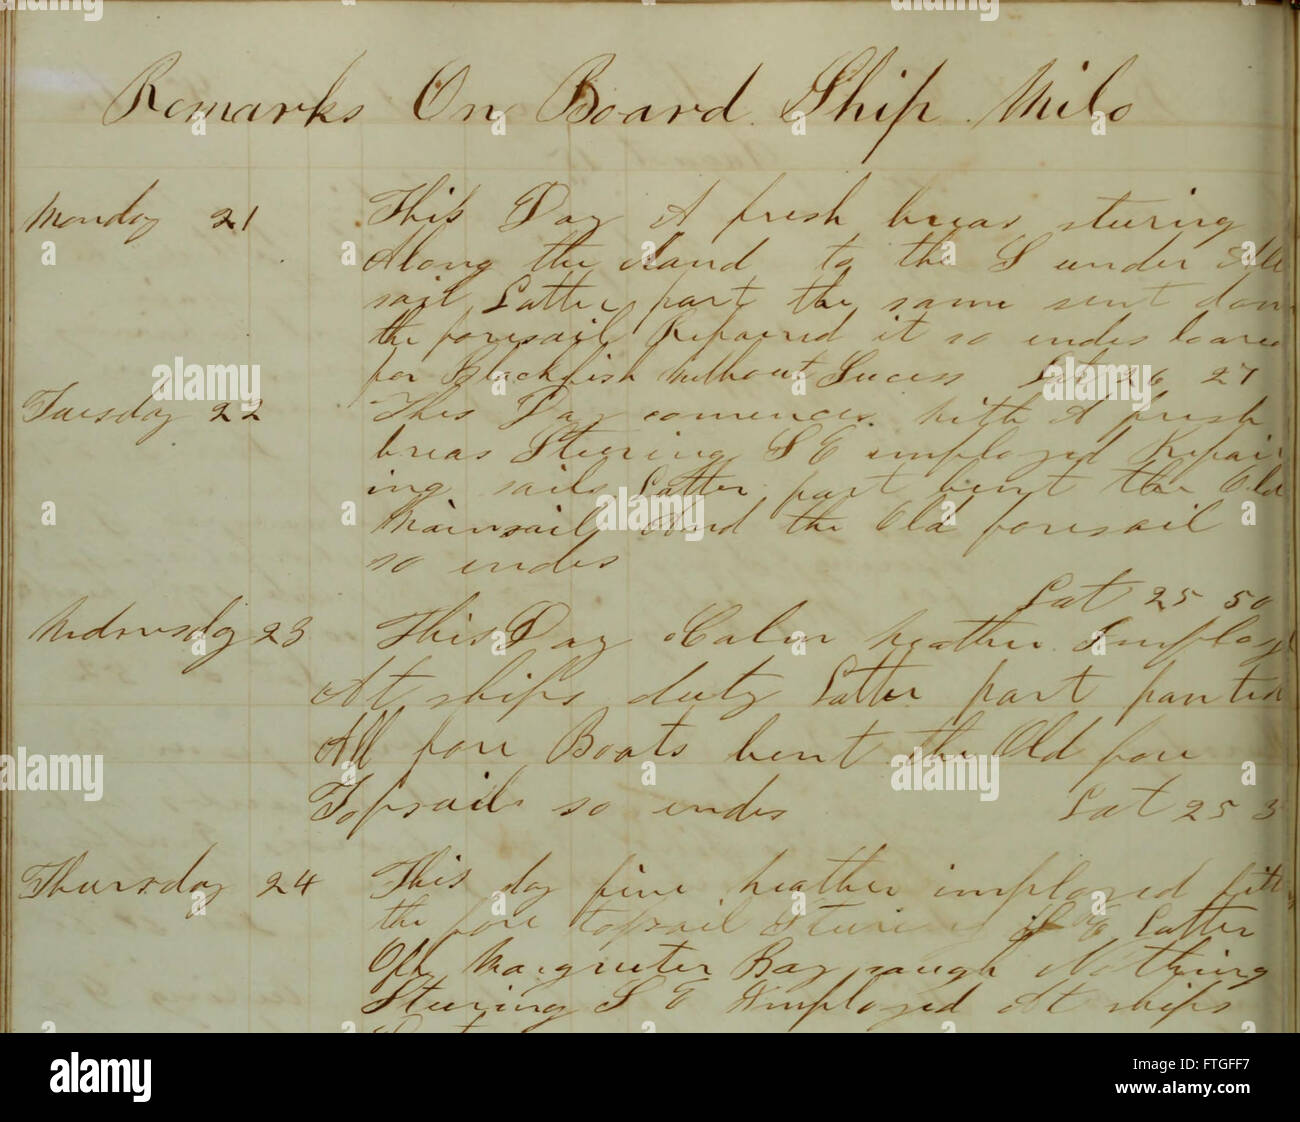 Remarks On Board Ship Milo
Monday 21 This Day A fresh breas stering
Along the Land to the S under All
sail Latter part the same sent down
the foresail Repaired it so endes loared
for Blackfish Without Sucess Lat 26 27
Tuesday 22 This Day comences with A fresh
breas Steering S E employed Repair
ing sails Latter part bent the Old
Mainsail And the Old foresail
so endes
Lat 25 50
Wednesday 23 This Day Calm weather Employed
At ships duty Latter part panted
All fore Boats bent the Old fore
Topsail so endes Lat 25 3
Thursday 24 This day fine weather employed fitt
the fore topsail Steering S E Latter
Off Margueter Bay saugh Nothing
Steering S E Employed At ships
alamy stock photo
Image ID: FTGFF7
www.alamy.com